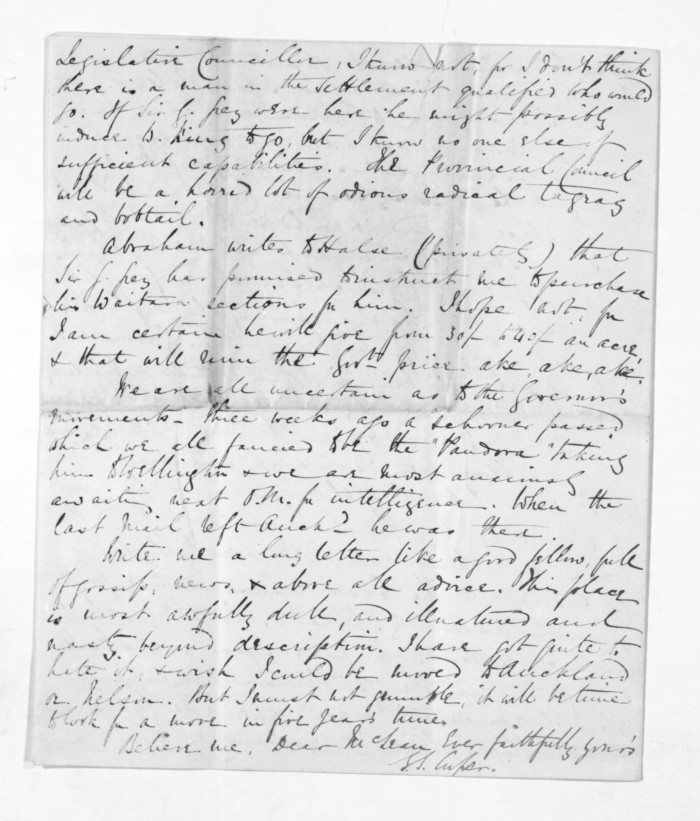 Legislative Councillor, I know not, for I don't think
there is a man in the settlement qualified who would
go. If Sir G. Grey were here he might possibly
induce W. King to go, but I know no one else of
sufficient capabilities. The Provincial Council
will be a horrid lot of odious radical tagrag
and bobtail.
Abraham writes to Halse (privately) that
Sir G. Grey has promised to instruct me to purchase
his Waitara sections for him. I hope not, for
I am certain he will give from 30/- to 40/- an acre,
& that will ruin the Govt. price. ake, ake, ake.
We are all uncertain as to the Governor's
movements - three weeks ago a schooner passed
which we all fancied to be the "Pandora" taking
him to Wellington & we are most anxiously
awaiting next O.M. for intelligence. When the
last mail left Auckd. he was there
Write me a long letter like a good fellow, full
of gossip, news, & above all advice. This place
is most awfully dull, and illnatured and
nasty beyond description. I have got quite to
hate it, & wish I could be moved to Auckland
or Nelson. But I must not grumble, it will be time
to look for a move in five years time.
Believe me, Dear McLean, Ever faithfully yours
G.S. Cooper.